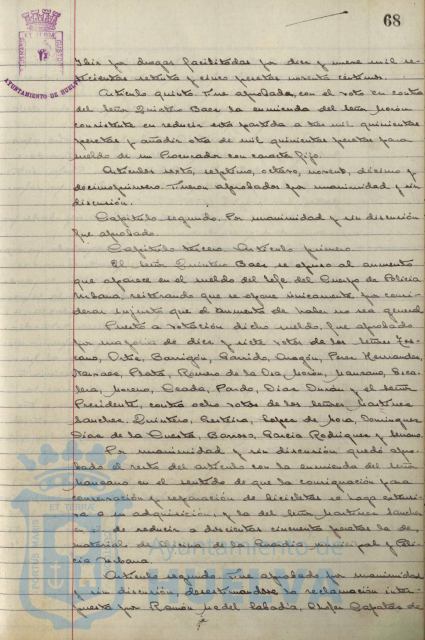 68
AYUNTAMIENTO DE HUELVA
por drogas facilitadas por diez y nueve mil se-
tecientas setenta y cinco pesetas noventa céntimos.
Artículo quinto. Fue aprobada, con el voto en contra
del Señor Quintero Baez la enmienda del Señor Morón
consistente en reducir esta partida a tres mil quinientas
pesetas y añadir otra de mil quinientas pesetas para
sueldo de un Procurador con caracter fijo.
Artículos sexto, septimo, octavo, noveno, décimo y
decimoprimero. Fueron aprobados por unanimidad y sin
discusión.
Capítulo segundo. Por unanimidad y sin discusión
fue aprobado.
Capítulo tercero. Artículo primero.
El Señor Quintero Baez se opuso al aumento
que aparece en el sueldo del Jefe del Cuerpo de Policia
Urbana, reiterando que se opone únicamente por consi-
derar injusto que el aumento de haber no sea general
Puesto a votación dicho sueldo, fue aprobado
por mayoria de diez y siete votos de los Señores
Ortiz, Barrigón, Garrido, Aragón, Perez Hernandez,
Plata, Romero de la Osa, Morón, Manzano,
Moreno, Pardo, Diaz Durán y el Señor
Presidente, contra ocho votos de los Señores Martinez
Sanchez, Quintero, Lopez de Dominguez,
Diaz de la Cuesta, Barroso, Garcia Rodriguez y
Por unanimidad y sin discusión quedó apro-
bado el resto del artículo con la enmienda del Señor
Manzano en el sentido de que la consignación para
conservación y reparación de bicicletas se haga extensiva
a su adquisición, y la del Señor Martinez Sanchez
de reducir a doscientas cincuenta pesetas la de
material de oficina de la Guardia municipal y Poli-
cia Urbana.
Artículo segundo. Fue aprobado por unanimidad
y sin discusión, desestimandose la reclamación inter-
puesta por Ramón Medel Labadia, Chofer Capataz de
Ayuntamiento de
HUELVA
PORTUS MARIS
ET TERRAE